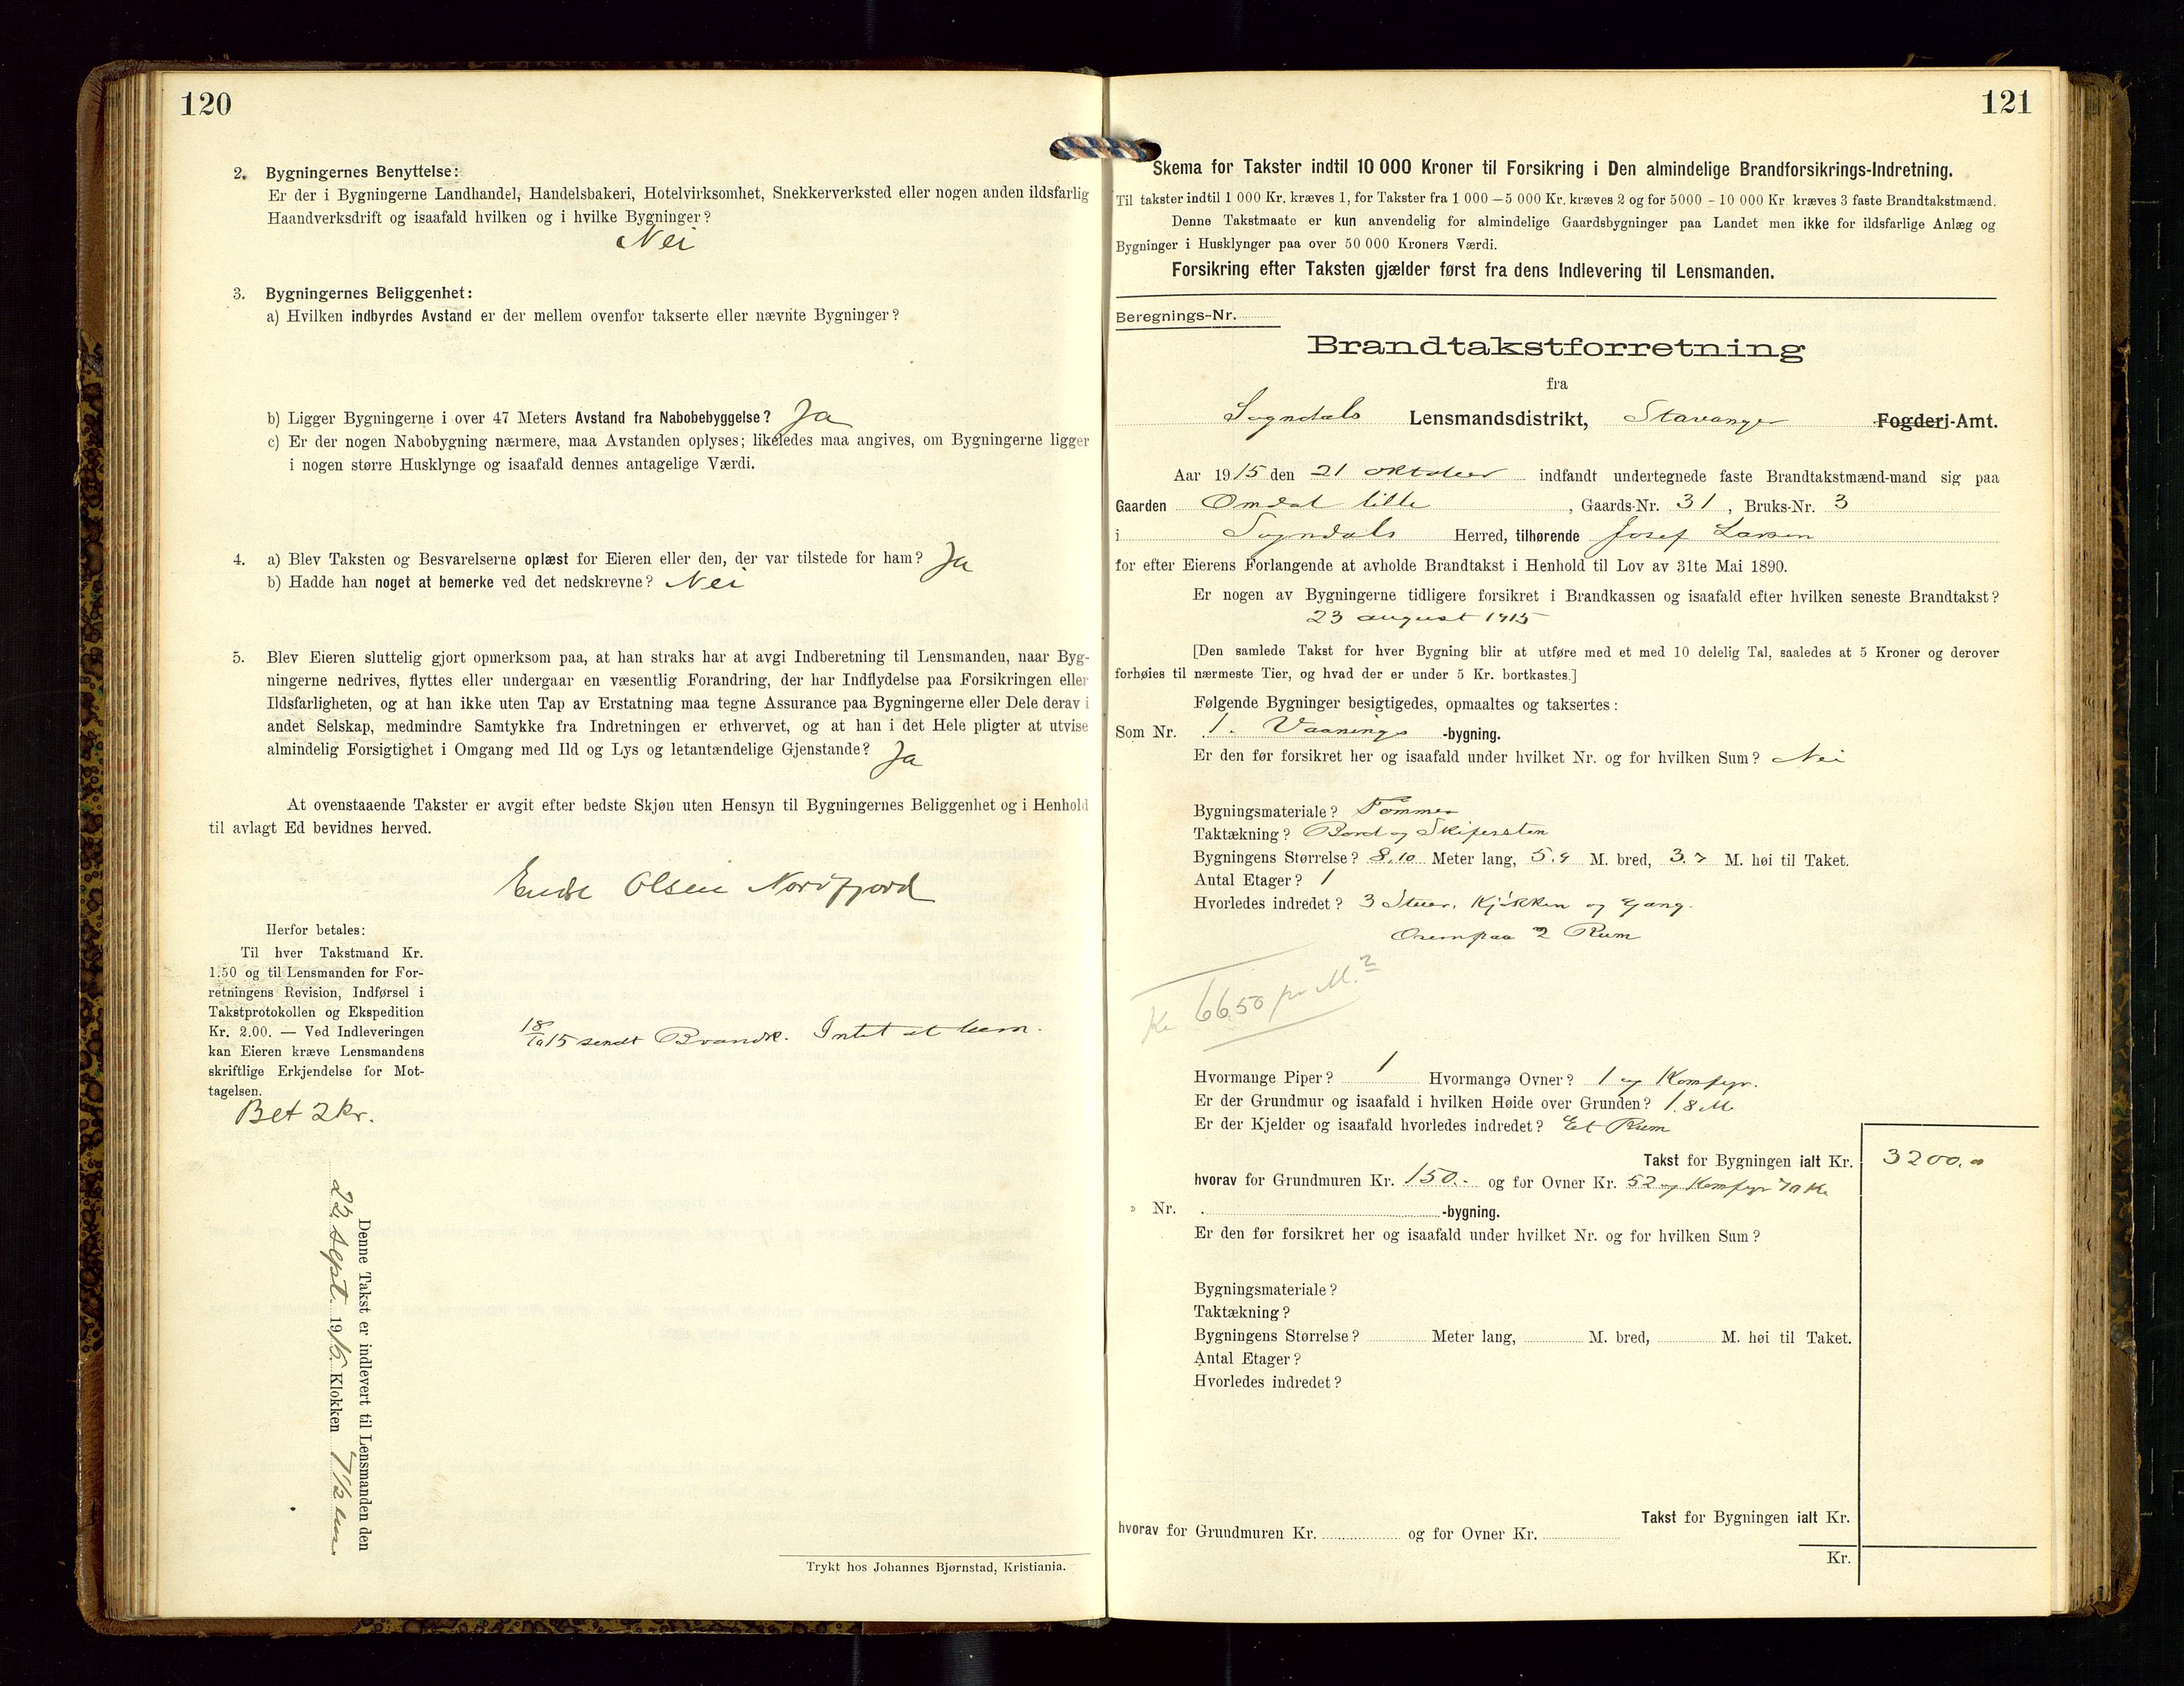 120
2. Bygningernes Benyttelse:
Er der i Bygningerne Landhandel, Handelsbakeri, Hotelvirksomhet, Snekkerverksted eller nogen anden ildsfarlig
Haandverksdrift og isaafald hvilken og i hvilke Bygninger?
Nei
3. Bygningernes Beliggenhet:
a) Hvilken indbyrdes Avstand er der mellem ovenfor takserte eller nævnte Bygninger?
b) Ligger Bygningerne i over 47 Meters Avstand fra Nabobebyggelse? Ja
c) Er der nogen Nabobygning nærmere, maa Avstanden oplyses; likeledes maa angives, om Bygningerne ligger
i nogen større Husklynge og isaafald dennes antagelige Værdi.
4. a) Blev Taksten og Besvarelserne oplæst for Eieren eller den, der var tilstede for ham? Ja
b) Hadde han noget at bemerke ved det nedskrevne? Nei
5. Blev Eieren sluttelig gjort opmerksom paa, at han straks har at avgi Indberetning til Lensmanden, naar Byg-
ningerne nedrives, flyttes eller undergaar en væsentlig Forandring, der har Indflydelse paa Forsikringen eller
Ildsfarligheten, og at han ikke uten Tap av Erstatning maa tegne Assurance paa Bygningerne eller Dele derav i
andet Selskap, medmindre Samtykke fra Indretningen er erhvervet, og at han i det Hele pligter at utvise
almindelig Forsigtighet i Omgang med Ild og Lys og letantændelige Gjenstande? Ja
At ovenstaaende Takster er avgit efter bedste Skjøn uten Hensyn til Bygningernes Beliggenhet og i Henhold
til avlagt Ed bevidnes herved.
Endre Olsen Nordfjord
Herfor betales:
Til hver Takstmand Kr.
1.50 og til Lensmanden for For-
retningens Revision, Indførsel i
Takstprotokollen og Ekspedition
Kr. 2.00. — Ved Indleveringen
kan Eieren kræve Lensmandens
skriftlige Erkjendelse for Mot-
tagelsen.
18/10 15 sendt Brandk. Intet at bem.
Bet 2 kr.
Denne Takst er indlevert til Lensmanden den
22 sept. 1915. Klokken 7 1/2
Trykt hos Johannes Bjørnstad, Kristiania.
121
Skema for Takster indtil 10 000 Kroner til Forsikring i Den almindelige Brandforsikrings-Indretning.
Til takster indtil 1 000 Kr. kræves 1, for Takster fra 1 000 — 5 000 Kr. kræves 2 og for 5000 - 10 000 Kr. kræves 3 faste Brandtakstmænd.
Denne Takstmaate er kun anvendelig for almindelige Gaardsbygninger paa Landet men ikke for ildsfarlige Anlæg og
Bygninger i Husklynger paa over 50 000 Kroners Værdi.
Forsikring efter Taksten gjælder først fra dens Indlevering til Lensmanden.
Beregnings-Nr.
Brandtakstforretning
fra
Sogndals Lensmandsdistrikt, Stavanger Fogderi-Amt.
Aar 1915 den 21 oktober indfandt undertegnede faste Brandtakstmænd-mand sig paa
Gaarden Omdal lille, Gaards-Nr. 31, Bruks-Nr. 3
i Sogndals Herred, tilhørende Josef Larsen
for efter Eierens Forlangende at avholde Brandtakst i Henhold til Lov av 31te Mai 1890.
Er nogen av Bygningerne tidligere forsikret i Brandkassen og isaafald efter hvilken seneste Brandtakst?
23 august 1915
[Den samlede Takst for hver Bygning blir at utføre med et med 10 delelig Tal, saaledes at 5 Kroner og derover
forhøies til nærmeste Tier, og hvad der er under 5 Kr. bortkastes.]
Følgende Bygninger besigtigedes, opmaaltes og taksertes:
Som Nr. 1. Vaanings -bygning.
Er den før forsikret her og isaafald under hvilket Nr. og for hvilken Sum? Nei
Bygningsmateriale? Tømmer
Taktækning? Bord og Skifersten
Bygningens Størrelse? 8.10 Meter lang, 5.9 M. bred, 3.7 M. høi til Taket.
Antal Etager? 1
Hvorledes indredet? 3 Stuer, Kjøkken og Gang.
Ovenpaa 2 Rum
Kr 66.50 pr M.²
Hvormange Piper? 1 Hvormange Ovner? 1 og Komfyr.
Er der Grundmur og isaafald i hvilken Høide over Grunden? 1.8 M
Er der Kjelder og isaafald hvorledes indredet? Et Rum
Takst for Bygningen ialt Kr. 3200.00
hvorav for Grundmuren Kr. 150.- og for Ovner Kr. 52 og Komfyr 70 Kr
» Nr. -bygning.
Er den før forsikret her og isaafald under hvilket Nr. og for hvilken Sum?
Bygningsmateriale?
Taktækning?
Bygningens Størrelse? Meter lang, M. bred, M. høi til Taket.
Antal Etager?
Hvorledes indredet?
Takst for Bygningen ialt Kr.
hvorav for Grundmuren Kr. og for Ovner Kr.
Kr.